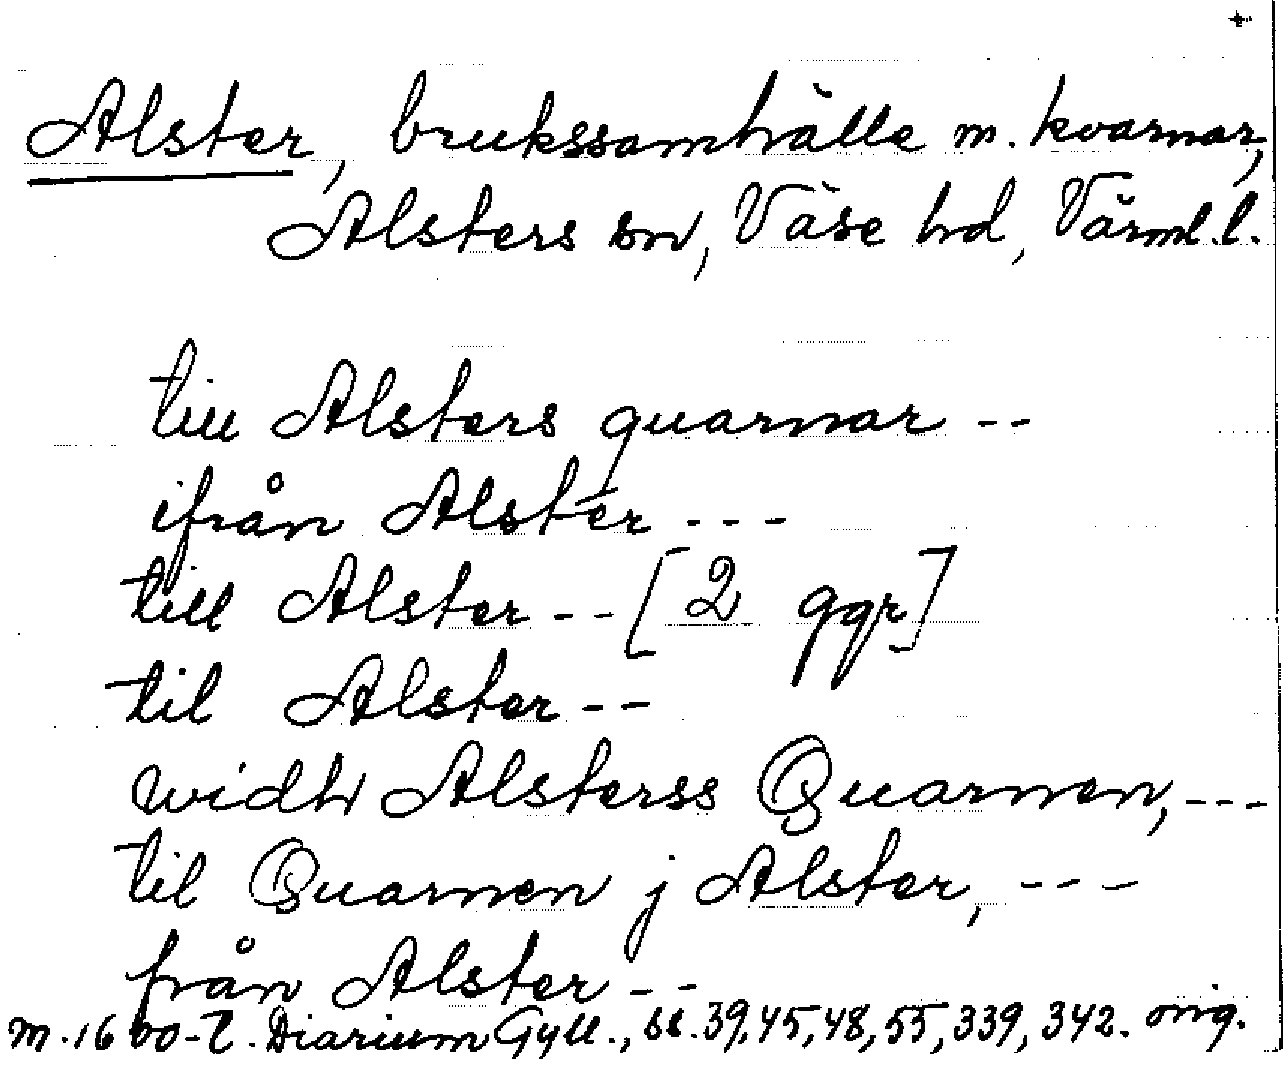 Alster, brukssamhälle m. kvarnar,
Alsters sn, Väse hd, Värml. l.
till Alsters quarnar --
ifrån Alster ---
till Alster -- [2 ggr]
til Alster --
widh Alsterss Quarnen, ---
til Quarnen j Alster, ---
från Alster --
m. 1600-t. Diarium Gyll., ss. 39, 45, 48, 55, 339, 342. orig.